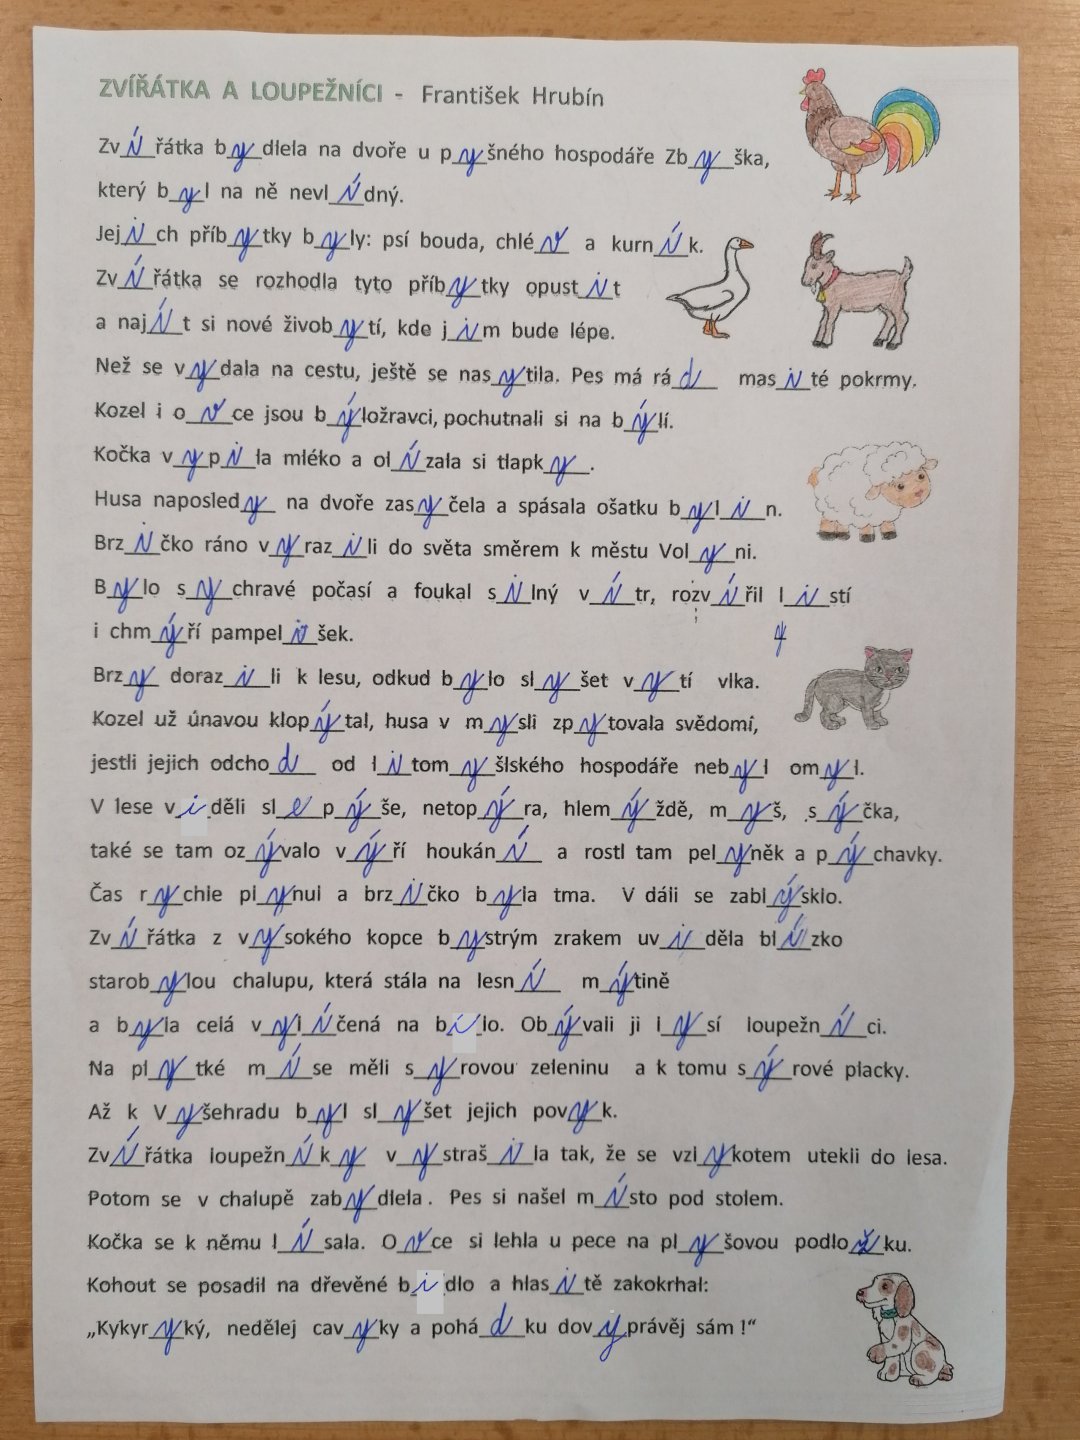 ZVÍŘÁTKA A LOUPEŽNÍCI - František Hrubín
Zvířátka bydlela na dvoře u pyšného hospodáře Zbyška,
který byl na ně nevlídný.
Jejich příbytky byly: psí bouda, chlév a kurník.
Zvířátka se rozhodla tyto příbytky opustit
a najít si nové živobytí, kde jim bude lépe.
Než se vydala na cestu, ještě se nasytila. Pes má rád masité pokrmy.
Kozel i ovce jsou býložravci, pochutnali si na býlí.
Kočka vypila mléko a olízala si tlapky.
Husa naposledy na dvoře zasyčela a spásala ošatku bylin.
Brzičko ráno vyrazili do světa směrem k městu Volyni.
Bylo sychravé počasí a foukal silný vítr, rozvířil listí
i chmýří pampelišek.
Brzy dorazili k lesu, odkud bylo slyšet vytí vlka.
Kozel už únavou klopýtal, husa v mysli zpytovala svědomí,
jestli jejich odchod od litomyšlského hospodáře nebyl omyl.
V lese viděli slepýše, netopýra, hlemýždě, myš, sýčka,
také se tam ozývalo výří houkání a rostl tam pelyněk a pýchavky.
Čas rychle plynul a brzičko byla tma. V dáli se zablýsklo.
Zvířátka z vysokého kopce bystrým zrakem uviděla blízko
starobylou chalupu, která stála na lesní mýtině
a byla celá vylíčená na bílo. Obývali ji lysí loupežníci.
Na plytké míse měli syrovou zeleninu a k tomu sýrové placky.
Až k Vyšehradu byl slyšet jejich povyk.
Zvířátka loupežníky vystrašila tak, že se vzlykotem utekli do lesa.
Potom se v chalupě zabydlela. Pes si našel místo pod stolem.
Kočka se k němu lísala. Ovce si lehla u pece na plyšovou podložku.
Kohout se posadil na dřevěné bidlo a hlasitě zakokrhal:
„Kykyryký, nedělej cavyky a pohádku dovyprávěj sám !“